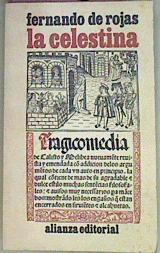 fernando de rojas
la celestina
Tragicomedia
de Calisto y Melibea nuevamēte revis
ta y emendada cō addicion delos argu
mētos de cada vn auto en principio. la
qual cōtiene de mas de su agradable ⁊
dulce estilo muchas sentencias filosofa
les: ⁊ auisos muy necessarios pa mā
bos mostrādo les los engaños q̄ estā
encerrados en siruiētes ⁊ alcahuetas.
alianza editorial